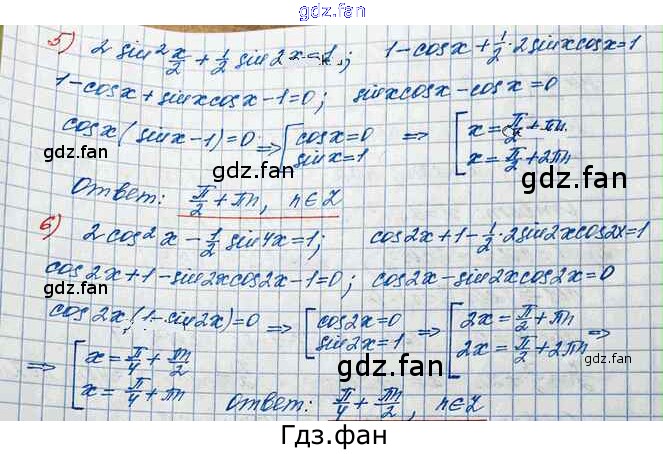 gdz.fan
5) 2 sin² x/2 + 1/2 sin 2x = 1; 1 - cosx + 1/2 · 2 sinx cosx = 1
1 - cosx + sinx cosx - 1 = 0; sinx cosx - cosx = 0
cosx (sinx - 1) = 0 => [ cosx = 0 => [ x = π/2 + πn
sinx = 1 x = π/2 + 2πn
gdz.fan
gdz.fan
gdz.fan
Ответ: π/2 + πn, n∈Z
6) 2 cos² x - 1/2 sin 4x = 1; cos2x + 1 - 1/2 · 2 sin2x cos2x = 1
gdz.fan
cos2x + 1 - sin2x cos2x - 1 = 0; cos2x - sin2x cos2x = 0
gdz.fan
cos2x (1 - sin2x) = 0 => [ cos2x = 0 => [ 2x = π/2 + πn =>
sin2x = 1 2x = π/2 + 2πn
gdz.fan
gdz.fan
=> [ x = π/4 + πn/2
x = π/4 + πn Ответ: π/4 + πn/2, n∈Z
gdz.fan
gdz.fan
Гдз.фан